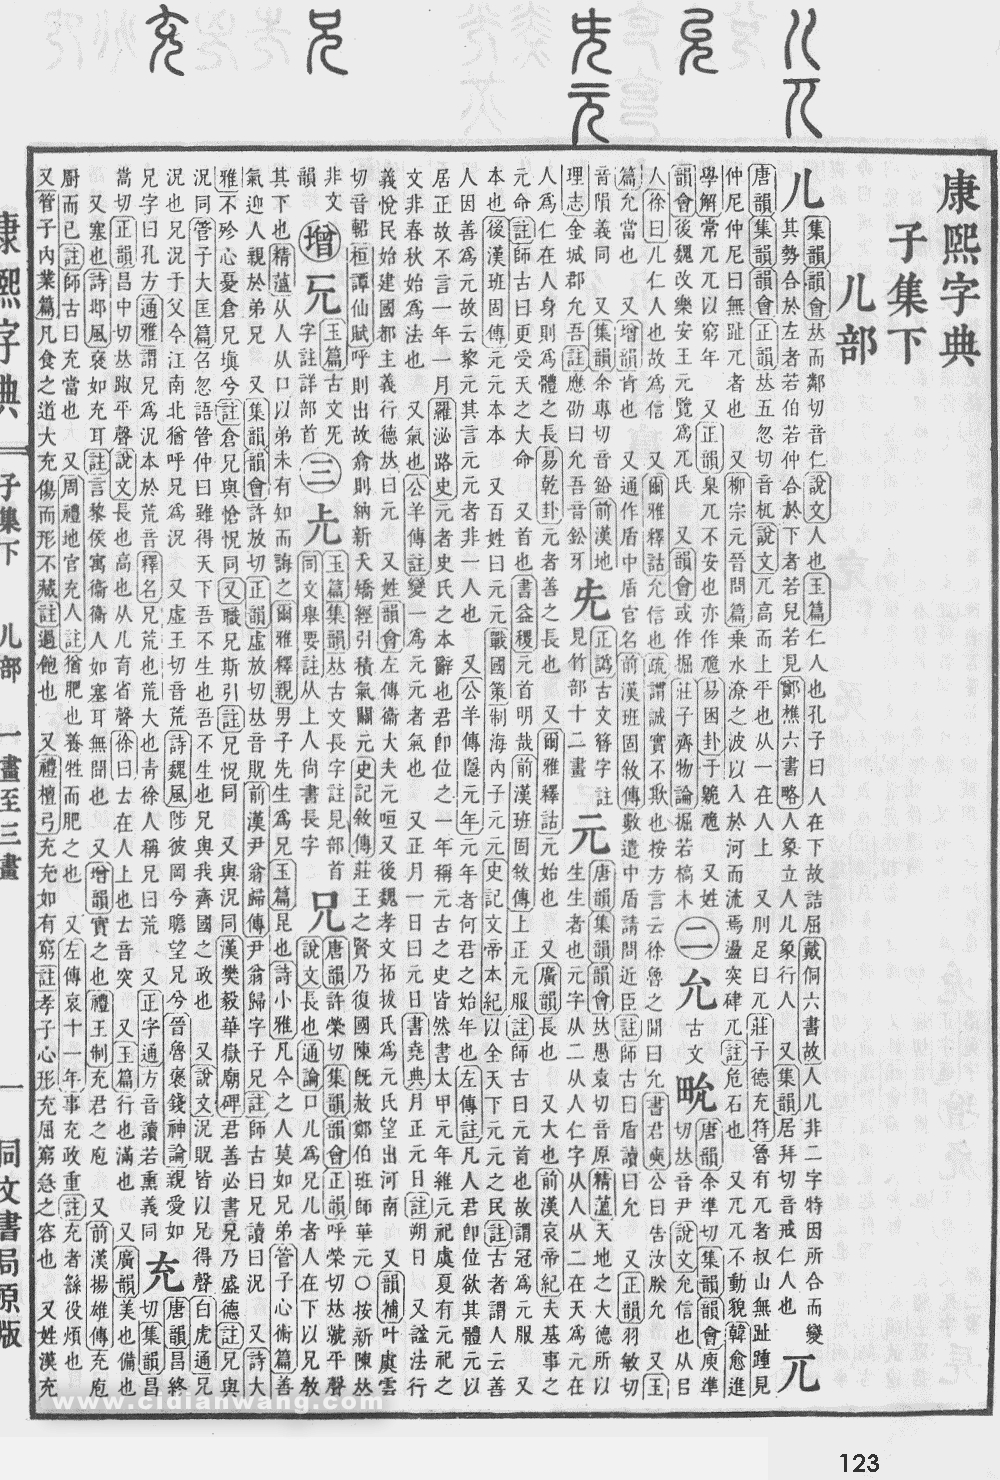 康熙字典
子集下
儿部
儿
集韻韻會𠀤而鄰切音仁說文人也玉篇仁人也孔子曰人在下故詰屈戴侗六書故人儿非二字特因所合而變
其勢合於左者若伯若仲合於下者若兒若見鄭樵六書略人象立人儿象行人 又集韻居拜切音戒仁人也
兀
唐韻集韻韻會正韻𠀤五忽切音杌說文兀高而上平也从一在人上 又刖足曰兀莊子德充符魯有兀者叔山無趾踵見
仲尼仲尼曰無趾兀者也 又柳宗元晉問篇乗水潦之波以入於河而流焉盪突硨兀註危石也 又兀兀不動貌韓愈進
學解常兀兀以窮年 又正韻臬兀不安也亦作卼易困卦于臲卼 又姓
韻會後魏改樂安王元覽爲兀氏 又韻會或作掘莊子齊物論掘若槁木
㊁
允
古文
㽙
唐韻余準切集韻韻會庾準
切𠀤音尹說文允信也从㠯
人徐曰儿仁人也故爲信 又爾雅釋詁允信也疏謂誠實不欺也按方言云徐魯之閒曰允書君奭公曰告汝朕允 又玉
篇允當也 又增韻肯也 又通作盾中盾官名前漢班固敘傳數遣中盾請問近臣註師古曰盾讀曰允 又正韻羽敏切
音隕義同 又集韻余專切音鉛前漢地
理志金城郡允吾註應劭曰允吾音鈆牙
兂
正譌古文簪字 註
見竹部十二畫
元
唐韻集韻韻會𠀤愚袁切音原精薀天地之大德所以
生生者也元字从二从人仁字从人从二在天爲元在
人爲仁在人身則爲體之長易乾卦元者善之長也 又爾雅釋詁元始也 又廣韻長也 又大也前漢哀帝紀夫基事之
元命註師古曰更受天之大命 又首也書益稷元首明哉前漢班固敘傳上正元服註師古曰元首也故謂冠爲元服 又
本也後漢班固傳元元本本 又百姓曰元元戰國策制海內子元元史記文帝本紀以全天下元元之民註古者謂人云善
人因善爲元故云黎元其言元元者非一人也 又公羊傳隱元年元年者何君之始年也左傳註凡人君卽位欲其體元以
居正故不言一年一月羅泌路史元者史氏之本辭也君卽位之一年稱元古之史皆然書太甲元年維元祀虞夏有元祀之
文非春秋始爲法也 又氣也公羊傳註變一爲元元者氣也 又正月一日曰元日書堯典月正元日註朔日 又諡法行
義悅民始建國都主義行德𠀤曰元 又姓韻會左傳衞大夫元咺又後魏孝文拓拔氏爲元氏望出河南 又韻補叶虞雲
切音輑桓譚仙賦呼則出故翕則納新夭矯經引積氣關元史記敘傳莊王之賢乃復國陳旣赦鄭伯班師華元○按新陳𠀤
非文
韻
增
兂
玉篇古文旡
字註詳部首
㊂
𠑷
玉篇集韻𠀤古文長字註見部首
同文舉要註从上人尙書長字
兄
唐韻許榮切集韻韻會正韻呼榮切𠀤虩平聲
說文長也通論口儿爲兄儿者人在下以兄教
其下也精薀从人从口以弟未有知而誨之爾雅釋親男子先生爲兄玉篇昆也詩小雅凡今之人莫如兄弟管子心術篇善
氣迎人親於弟兄 又集韻韻會許放切正韻虛放切𠀤音貺前漢尹翁歸傳尹翁歸字子兄註師古曰兄讀曰況 又詩大
雅不殄心憂倉兄塡兮註倉兄與愴怳同又職兄斯引註兄怳同 又與況同漢樊毅華嶽廟碑君善必書兄乃盛德註兄與
況同管子大匡篇召忽語管仲曰雖得天下吾不生也兄與我齊國之政也 又說文況貺皆以兄得聲白虎通兄
況也兄況于父今江南北猶呼兄爲況 又虛王切音荒詩魏風陟彼岡兮瞻望兄兮晉魯褒錢神論親愛如
兄字曰孔方通雅謂兄爲況本於荒音釋名兄荒也荒大也靑徐人稱兄曰荒 又正字通方音讀若熏義同
充
唐韻昌終
切集韻昌
嵩切正韻昌中切𠀤䟽平聲說文長也高也从儿育省聲徐曰𠫓在人上也𠫓音突 又玉篇行也滿也 又廣韻美也備也
又塞也詩邶風襃如充耳註言黎侯寓衞衞人如塞耳無聞也 又增韻實之也禮王制充君之庖 又前漢揚雄傳充庖
廚而已註師古曰充當也 又周禮地官充人註猶肥也養牲而肥之也 又左傳哀十一年事充政重註充者繇役煩也
又管子內業篇凡食之道大充傷而形不藏註過飽也 又禮檀弓充充如有窮註孝子心形充屈窮急之容也 又姓漢充
康熙字典
子集下
儿部
一畫至三畫
一
同文書局原版
www.cidianwang.com
123